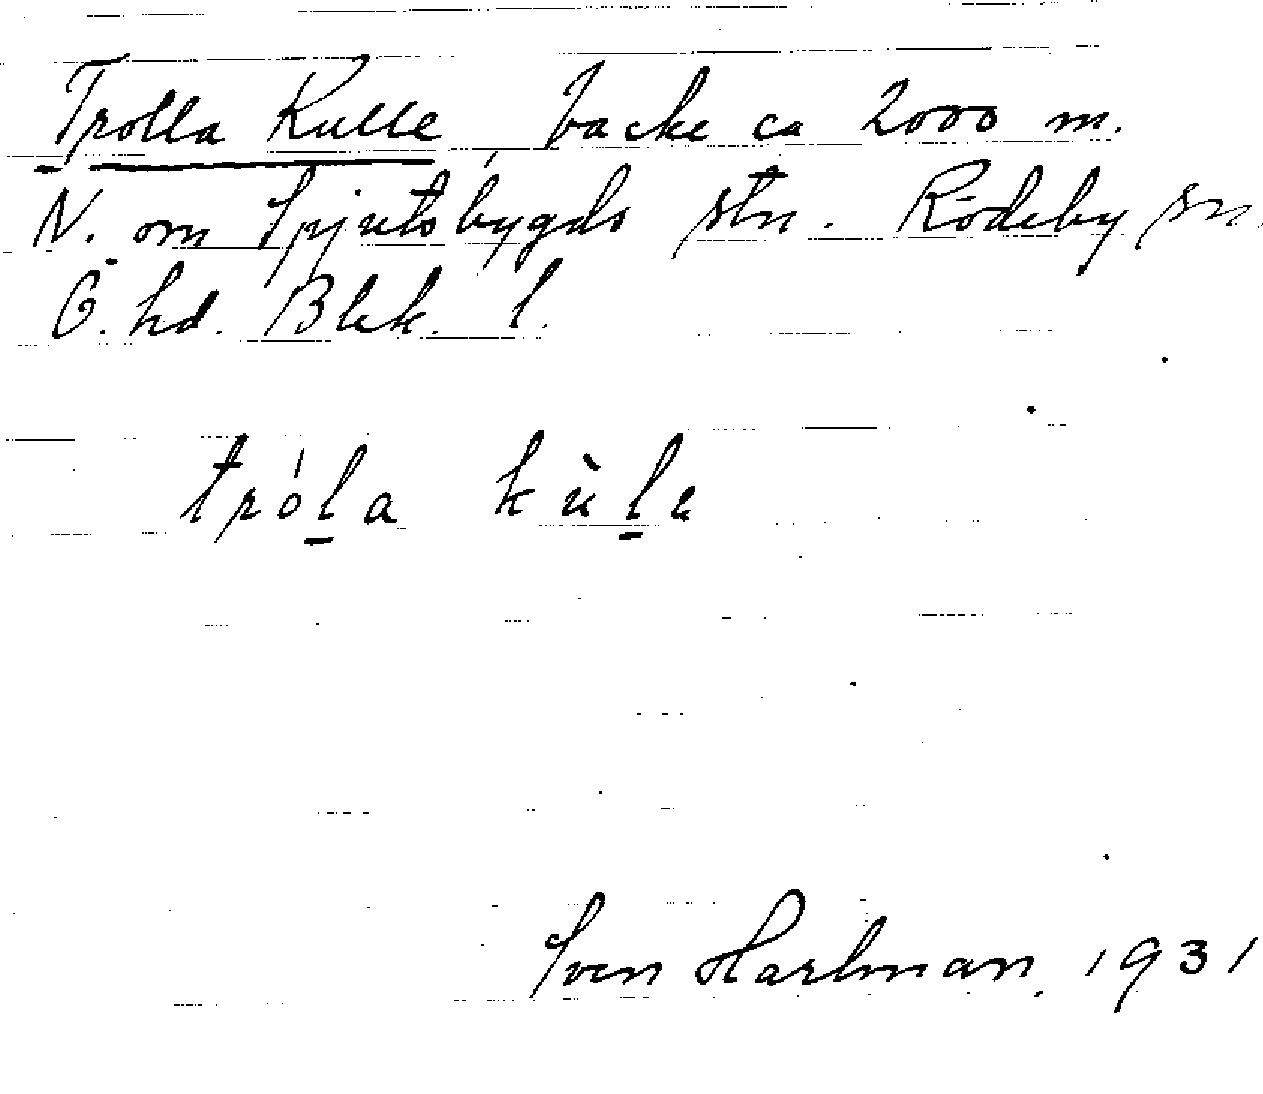 Trolla Kulle, backe ca 2000 m.
N. om Spjutsbygds stn. Rödeby sn,
Ö. hd. Blek. l.
tróḻa kùḻe
Sven Hartman. 1931